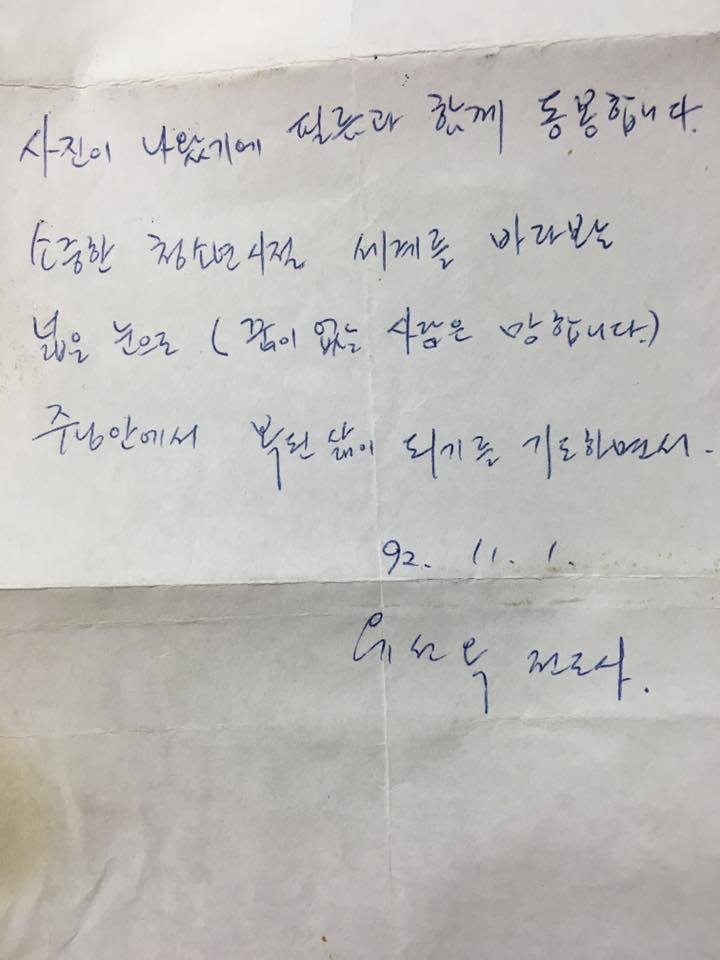 사진이 나왔기에 필름과 함께 동봉합니다.
소중한 청소년시절 세계를 바라보는
넓은 눈으로 (꿈이 없는 사람은 망합니다.)
주님안에서 복된 삶이 되기를 기도하면서.
92. 11. 1.
전도사.